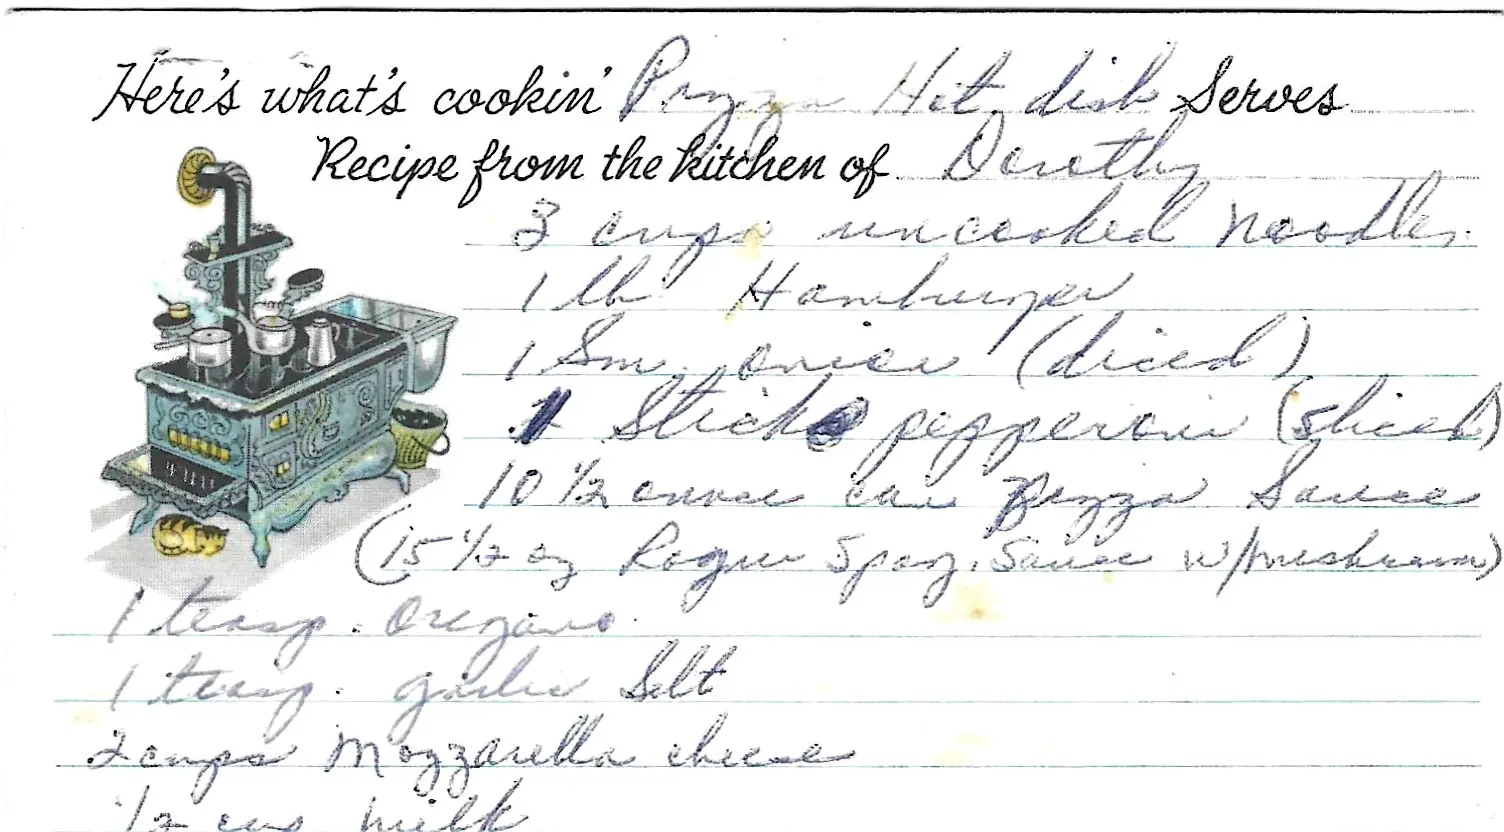 Here's what's cookin' Pizza Hot dish Serves
Recipe from the kitchen of Dorothy
3 cups uncooked noodles
1 lb. Hamburger
1 Sm. onion (diced)
1 Stick pepperoni (sliced)
10 1/2 ounce can Pizza Sauce
(15 1/2 oz Ragu Spag. Sauce w/mushroom)
1 teasp. Oregano
1 teasp. garlic Salt
2 cups Mozzarella cheese
1/2 cup milk